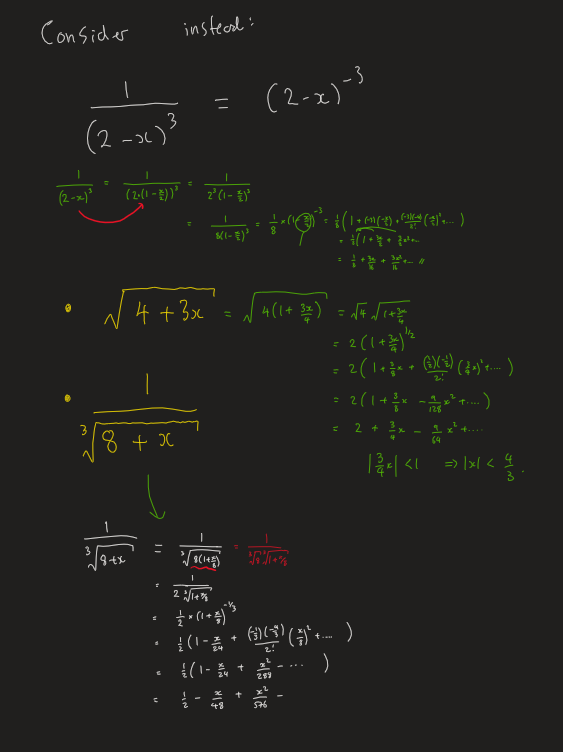 Consider instead:
1/(2-x)^3 = (2-x)^-3
1/(2-x)^3 = 1/(2·(1-x/2))^3 = 1/(2^3(1-x/2)^3)
= 1/(8(1-x/2)^3) = 1/8 × (1-x/2)^-3 = 1/8 (1 + (-3)(-x/2) + (-3)(-4)/2! (-x/2)^2 + ....)
= 1/8 (1 + 3x/2 + 3/2 x^2 + ...
= 1/8 + 3x/16 + 3x^2/16 + ... //
• √(4+3x) = √(4(1+3x/4)) = √4 √(1+3x/4)
= 2(1+3x/4)^1/2
= 2(1 + 3/8 x + (1/2)(-1/2)/2! (3/4 x)^2 + ....)
= 2(1 + 3/8 x - 9/128 x^2 + ....)
= 2 + 3/4 x - 9/64 x^2 + ....
|3/4 x| < 1 ⇒ |x| < 4/3.
• 1/∛(8+x)
1/∛(8+x) = 1/∛(8(1+x/8)) = 1/(∛8 ∛(1+x/8))
= 1/(2 ∛(1+x/8))
= 1/2 × (1+x/8)^-1/3
= 1/2 (1 - x/24 + (-1/3)(-4/3)/2! (x/8)^2 + ....)
= 1/2 (1 - x/24 + x^2/288 - ...)
= 1/2 - x/48 + x^2/576 -